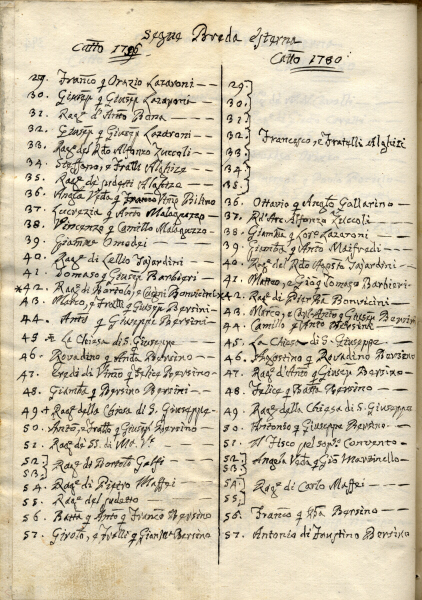 Segue Breda esterna
Catto 1786
29. Franco q Orazio Lazaroni
30. Giusep q Giusep Lazaroni
31. Rag d'Anto Bona
32. Giusep q Giusep Lazaroni
33. Rag del Rdo Alfonso Zuccoli
34. Steffano, e Flli Alghize
35. Rag de sudetti Alghize
36. Angla Veda q Franco
37. Lucrezia q Anto Malaguzzo
38. Vincenzo q Camillo Malaguzzo
39. Giamme Omodei
40. Rag di Lelio Fajardini
41. Tomaso q Giusep Barbieri
42. Rag di Bortolo, e Bonvicini
43. Marco, e Flli q Giusep Bersini
44. Anto q Giuseppe Bersini
45. La Chiesa di S. Giuseppe
46. Rovadino q Anto Bersino
47. Eredi di Vinco q Felice Bersino
48. Giamba q Bersino Bersini
49. Rag della Chiesa di S. Giuseppe
50. Anto, e Flli q Giusep Bersino
51. Rag di SS. di
52.
53. Rag di Bortolo Gaffi
54. Rag di Pietro Maffei
55. Rag del sudetto
56. Batta q Anto q Franco Bersino
57. Girolo, e Flli q Bersino
Catto 1780
29.
30.
31.
32. Francesco, e Fratelli Alghisi
33.
34.
35.
36. Ottavio q Anglo Gallarino
37. Rd Arc Alfonso Zuccoli
38. Giamba q Lore Lazaroni
39. Giamba q Anto Maifredi
40. Rag del Rdo Agosto Fajardini
41. Matteo, e Gio q Tomaso Barbieri
42. Rag di Piero Bta Bonvicini
43. Marco, e q Giusep Bersini
44. Camillo q Anto Bersini
45. La Chiesa di S. Giuseppe
46. Agostino q Rovadino Bersino
47. Rag d'Anto q Giusep Bersino
48. Felice q Batta Bersino
49. Rag della Chiesa di S. Giuseppe
50. Antonio q Giuseppe Bersino
51. Il Fisco pel Convento
52. Angela Veda q Gio Martinello
53.
54. Rag di Carlo Maffei
55.
56. Franco q Gba Bersino
57. Antonio di Faustino Bersino